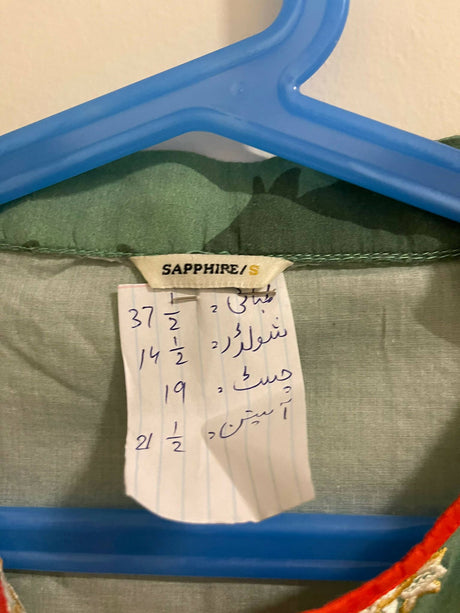 SAPPHIRE/S
لمبائی: 37 1/2
شولڈر: 14 1/2
چسٹ: 19
آستین: 21 1/2